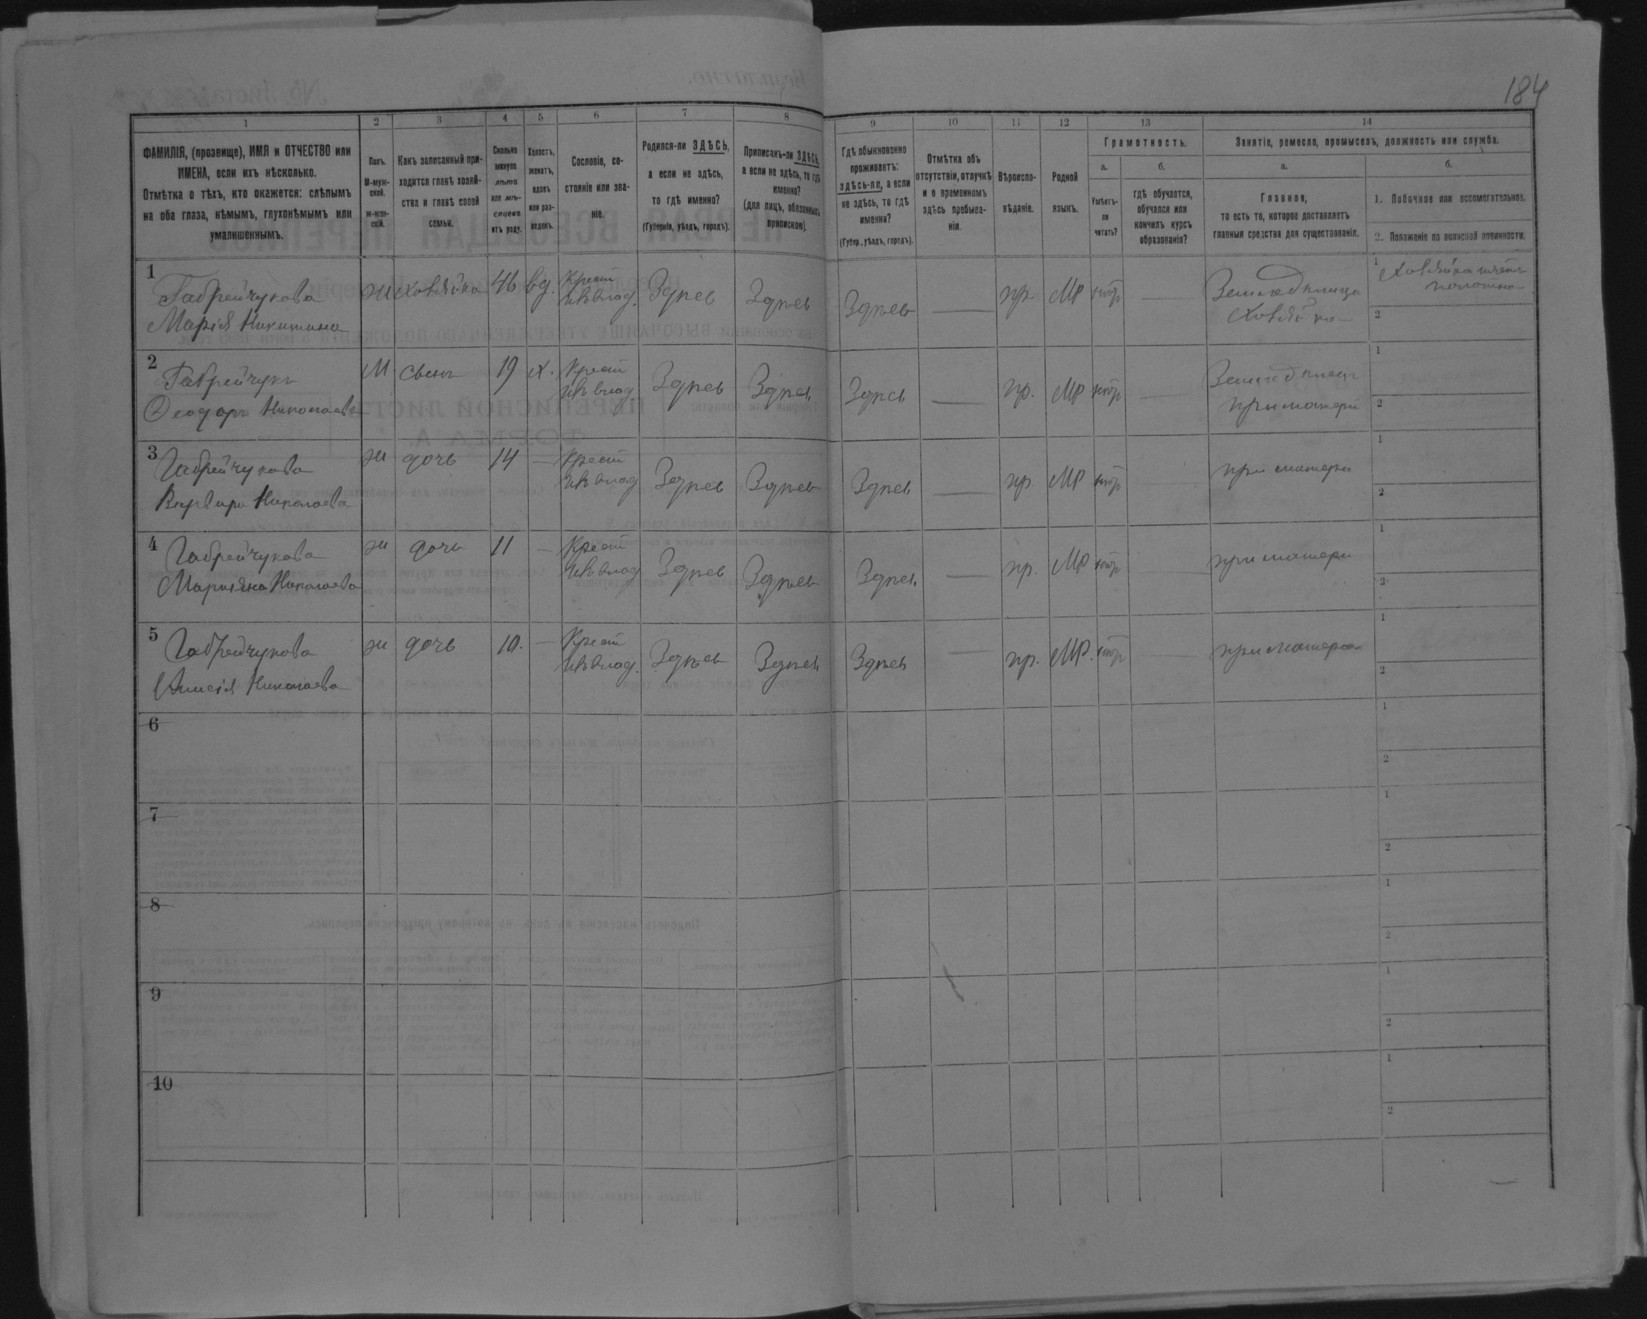 184
1 2 3 4 5 6 7 8 9 10 11 12 13 14
ФАМИЛІЯ, (прозвище), ИМЯ и ОТЧЕСТВО или
ИМЕНА, если ихъ нѣсколько.
Отмѣтка о тѣхъ, кто окажется: слѣпымъ
на оба глаза, нѣмымъ, глухонѣмымъ или
умалишеннымъ.
Полъ.
М-муж-
ской.
ж-жен-
скій.
Какъ записанный при-
ходится главѣ хозяй-
ства и главѣ своей
семьи.
Сколько
минуло
лѣтъ
или мѣ-
сяцевъ
отъ роду.
Холостъ,
женатъ,
вдовъ
или раз-
веденъ.
Сословіе, со-
стояніе или зва-
ніе.
Родился-ли ЗДѢСЬ,
а если не здѣсь,
то гдѣ именно?
(Губернія, уѣздъ, городъ).
Приписанъ-ли ЗДѢСЬ,
а если не здѣсь, то гдѣ
именно?
(для лицъ, обязанныхъ
припискою).
Гдѣ обыкновенно
проживаетъ:
здѣсь-ли, а если
не здѣсь, то гдѣ
именно?
(Губер., уѣздъ, городъ).
Отмѣтка объ
отсутствіи, отлучкѣ
и о временномъ
здѣсь пребыва-
ніи.
Вѣроиспо-
вѣданіе.
Родной
языкъ.
Грамотность.
а.
Умѣетъ-
ли
читать?
б.
гдѣ обучается,
обучался или
кончилъ курсъ
образованія?
Занятіе, ремесло, промыселъ, должность или служба.
а.
Главное,
то есть то, которое доставляетъ
главныя средства для существованія.
б.
1. Побочное или вспомогательное.
2. Положеніе по воинской повинности.
1 Габрейчукова ж хозяйка 46 вд. Крест Здѣсь Здѣсь Здѣсь — пр. МР — 1
Марія Никитина хозяйка 2
2 Габрейчукъ М сынъ 19 х. Крест Здѣсь Здѣсь Здѣсь — пр. МР — 1
Ѳеодоръ Николаевъ при матери 2
3 Габрейчукова ж дочь 14 — Крест Здѣсь Здѣсь Здѣсь — пр МР — при матери 1
Варвара Николаева 2
4 Габрейчукова ж дочь 11 — Крест Здѣсь Здѣсь Здѣсь — пр. МР — при матери 1
Николаева 2
5 Габрейчукова ж дочь 10. — Крест Здѣсь Здѣсь Здѣсь — пр. МР. — при матери 1
Николаева 2
6 1
2
7 1
2
8 1
2
9 1
2
10 1
2